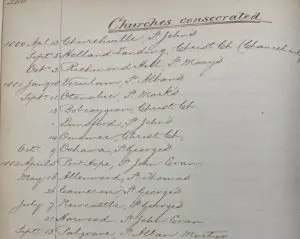 Churches consecrated
Apl 13 Churchville, St John's
Sept 5 Holland Landing, Christ Ch (Chancel
Oct 3 Richmond Hill St Mary's
St Alban's
Sept 11 Otonabee St Mark's
13 Bobcaygeon, Christ Ch.
Dunsford, St John's
14 Omemee, Christ Ch.
Oct 9 Oshawa, St George's
1882 April 5 Port Hope, St John Evan.
May 18 Allenwood, St Thomas
26 Cameron St George's
July 7 Newcastle, St George's
21 Norwood St John Evan
Sept 13 Palgrave, St Alban Martyr